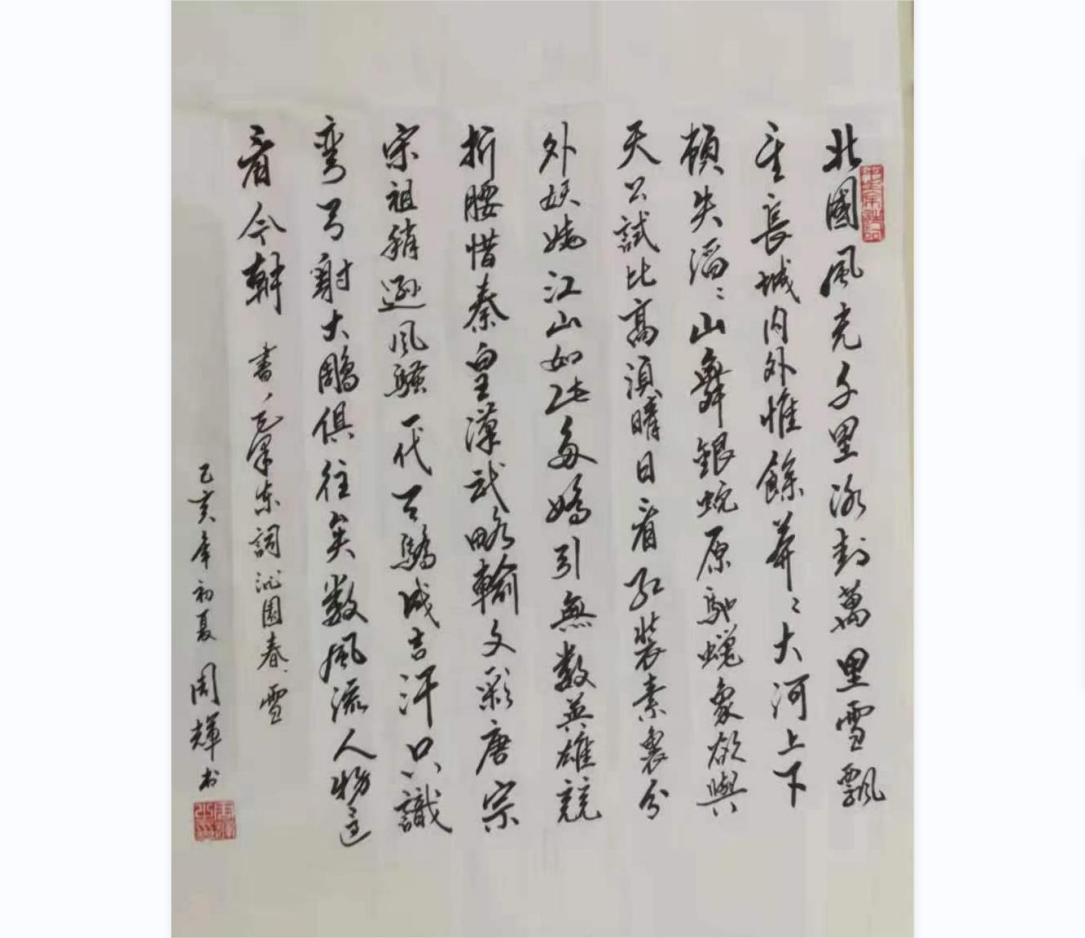 北國風光千里冰封萬里雪飄
望長城内外惟餘莽々大河上下
頓失滔々山舞銀蛇原馳蠟象欲與
天公試比高須晴日看紅裝素裹分
外妖娆江山如此多嬌引無数英雄競
折腰惜秦皇漢武略輸文彩唐宗
宋祖稍遜風騷一代天驕成吉汗只識
彎弓射大鵰俱往矣数風流人物還
看今朝 書、毛澤东詞沁園春、雪
己亥年初夏 周輝书